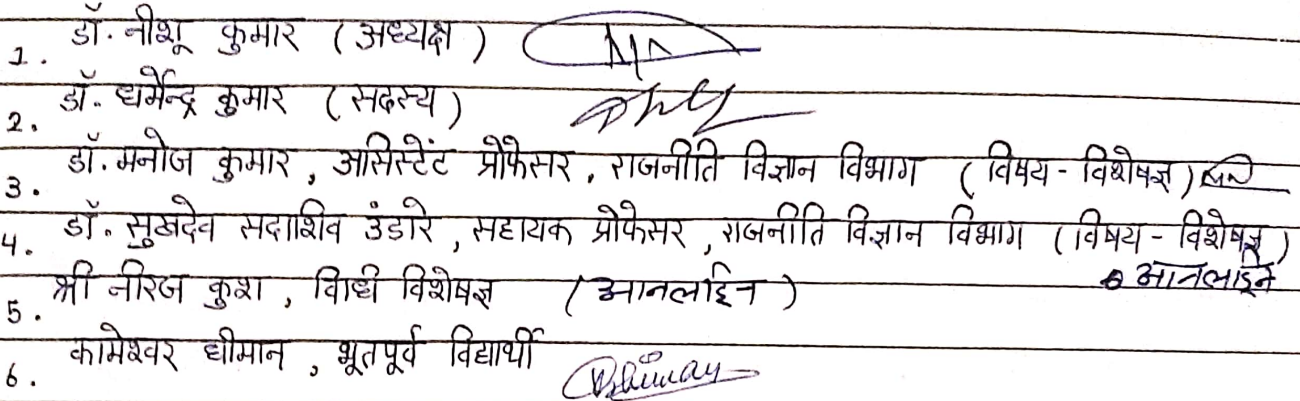 1. डॉ. नीशू कुमार (अध्यक्ष)
2. डॉ. धर्मेन्द्र कुमार (सदस्य)
3. डॉ. मनोज कुमार, असिस्टेंट प्रोफेसर, राजनीति विज्ञान विभाग (विषय - विशेषज्ञ)
4. डॉ. सुखदेव सदाशिव उंडारे, सहायक प्रोफेसर, राजनीति विज्ञान विभाग (विषय - विशेषज्ञ)
आनलाईन
5. श्री नीरज कुश, विधि विशेषज्ञ (आनलाईन)
6. कामेश्वर धीमान, भूतपूर्व विद्यार्थी